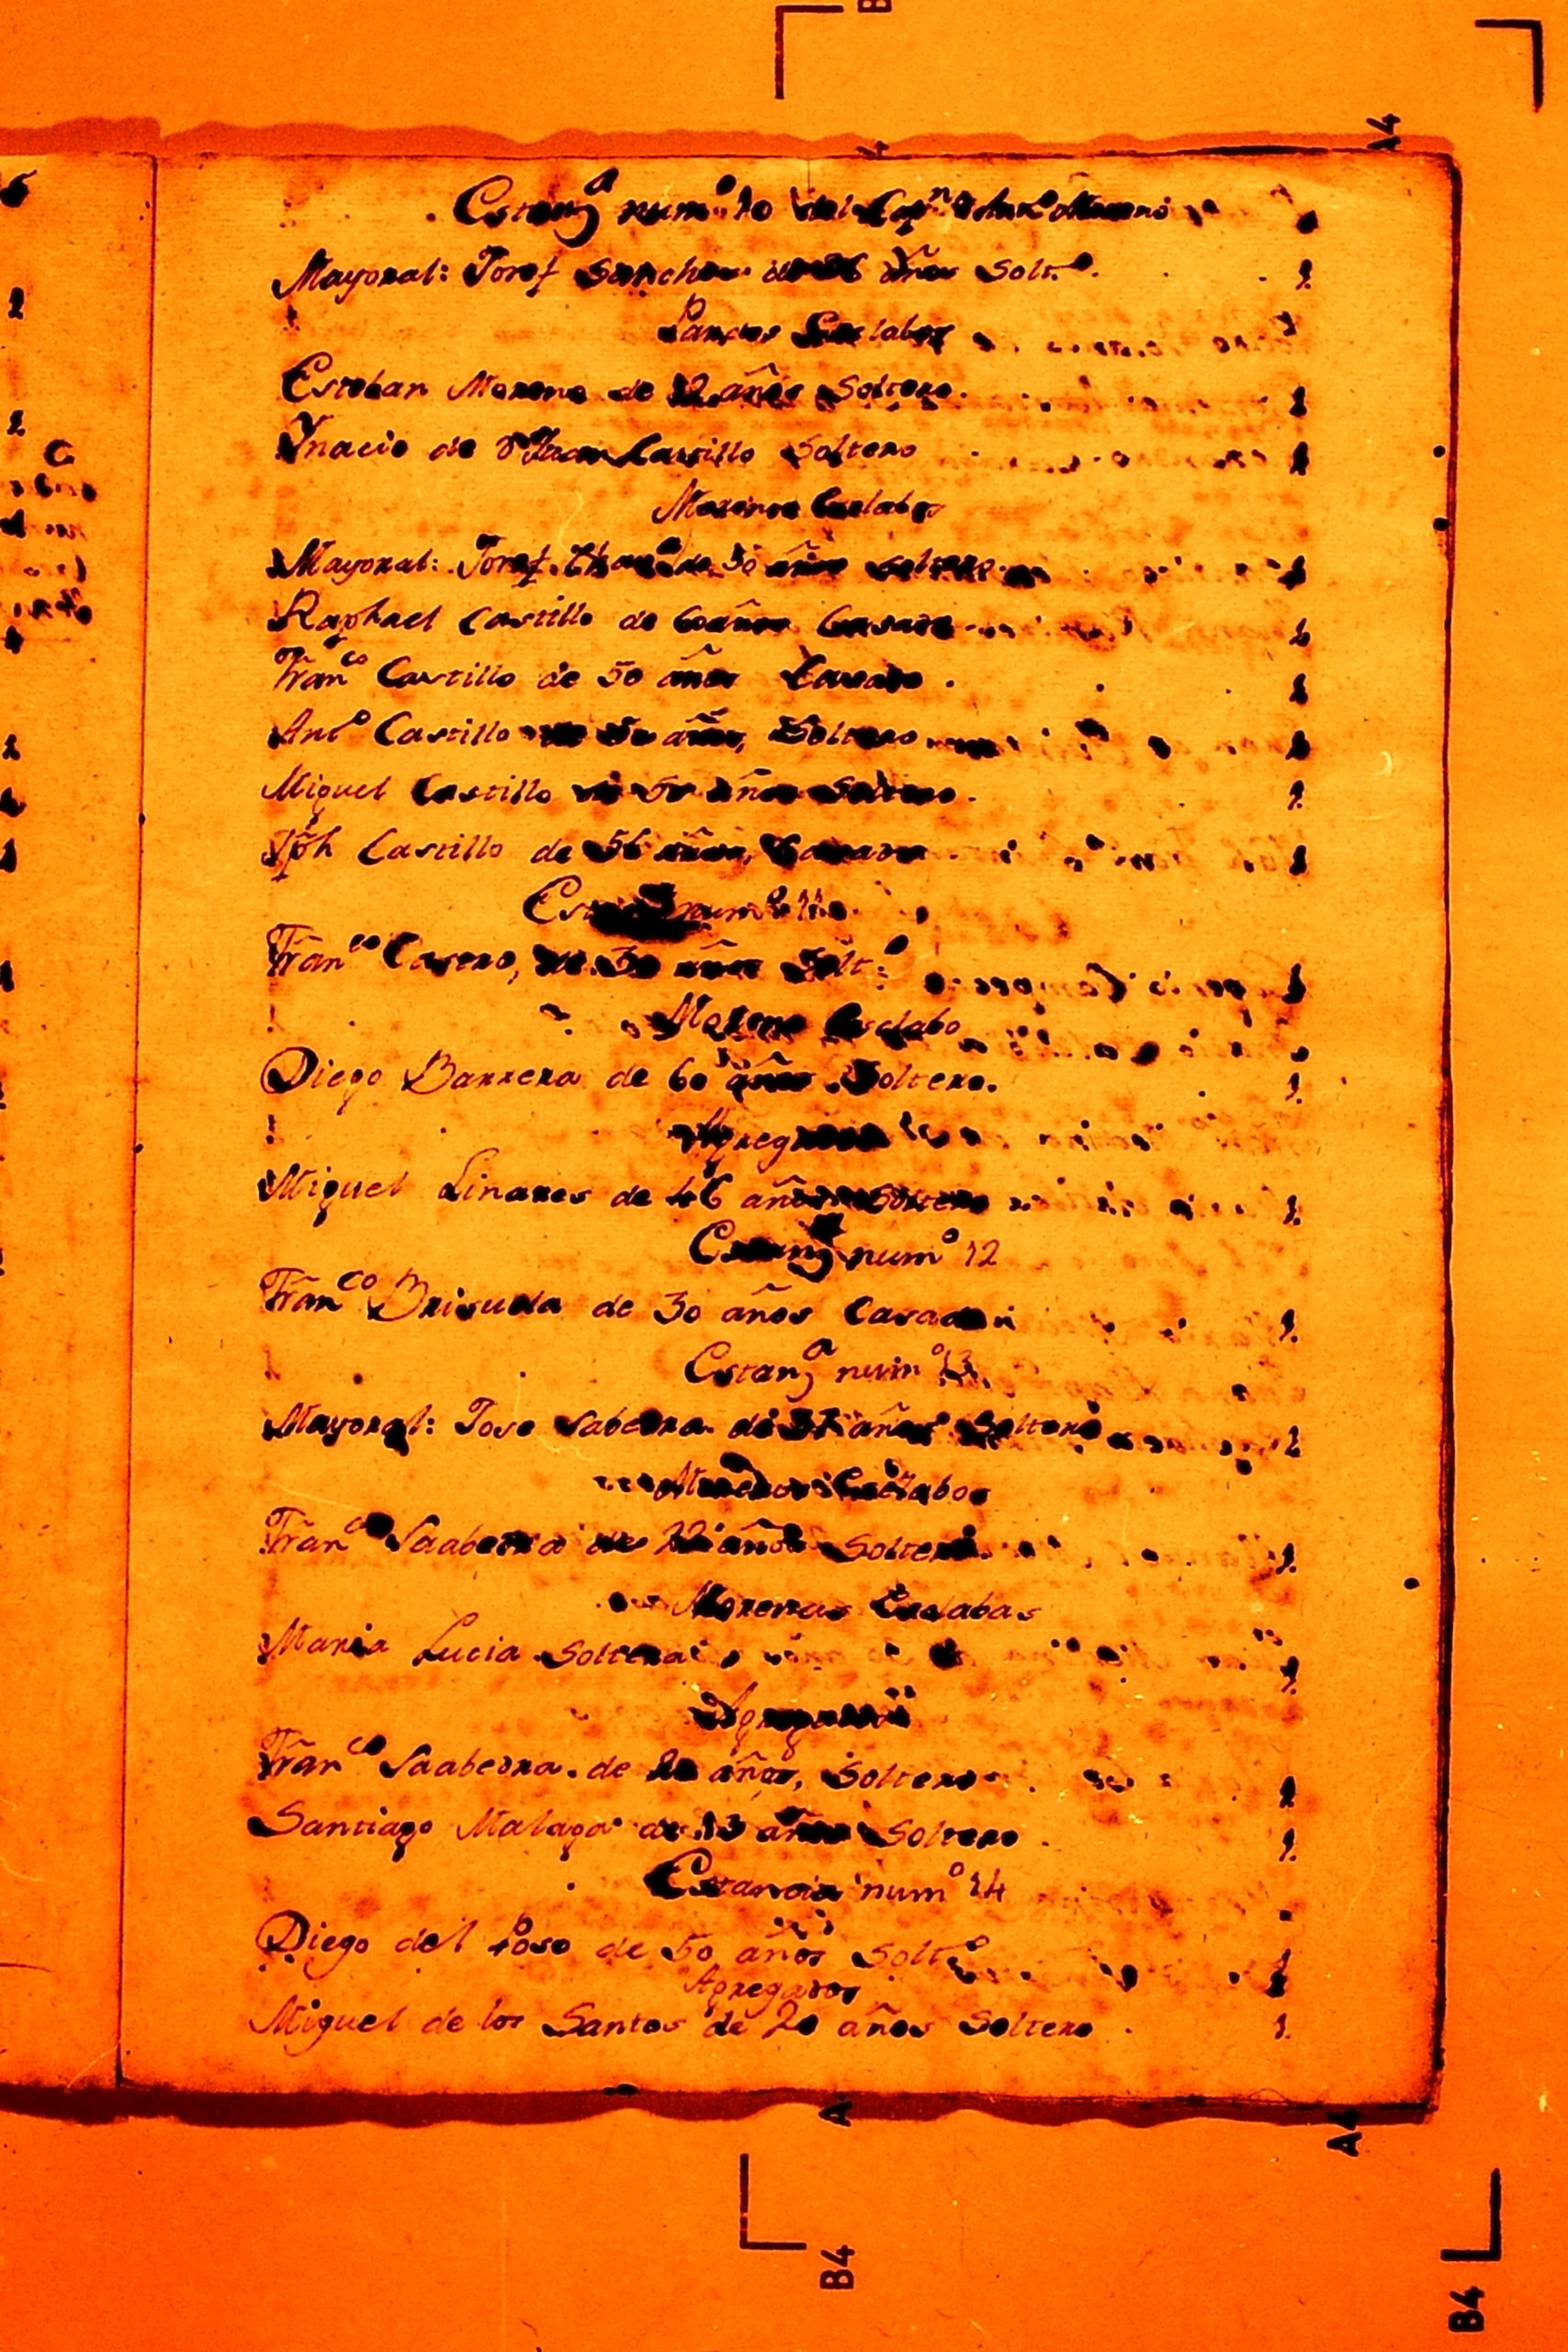 Estanª numº 10 del Capⁿ
Mayoral: Josef Sanches de años Soltº. 1.
Pardos Esclabos
Esteban Moreno de 12 años Soltero. 1
Ynacio de Castillo Soltero 1
Morenos Esclabos
Mayoral: Josef de 30 años soltero 1
Raphael Castillo de 60 años Casado 1
Franᶜᵒ Castillo de 50 años Casado. 1
Antº Castillo de 50 años, Soltero 1
Miguel Castillo de 50 años Soltero. 1.
Jph Castillo de 56 años, Casado 1
numº 11
Franᶜᵒ Casero, de 30 años Solt:º 1
Moreno Esclabo
Diego Barrera de 60 años Soltero. 1.
Agregados
Miguel Linares de 46 años Soltero 1.
Estanª numº 12
Franᶜᵒ Brisuela de 30 años Casado 1.
Estanª numº 13.
Mayoral: Jose Sabedra de 37 años Soltero 1
Esclabos
Franᶜᵒ Saabedra de 22 años Soltero. 1.
Morenas Esclabas
Maria Lucia Soltera 1.
Agregados
Franᶜᵒ Saabedra. de años, Soltero 1
Santiago Malaga de 13 años Soltero. 1.
Estancia numº 14
Diego del Poso de 50 años Soltº 1
Agregados
Miguel de los Santos de 20 años Soltero. 1.
A4
A
A4
B4
B4